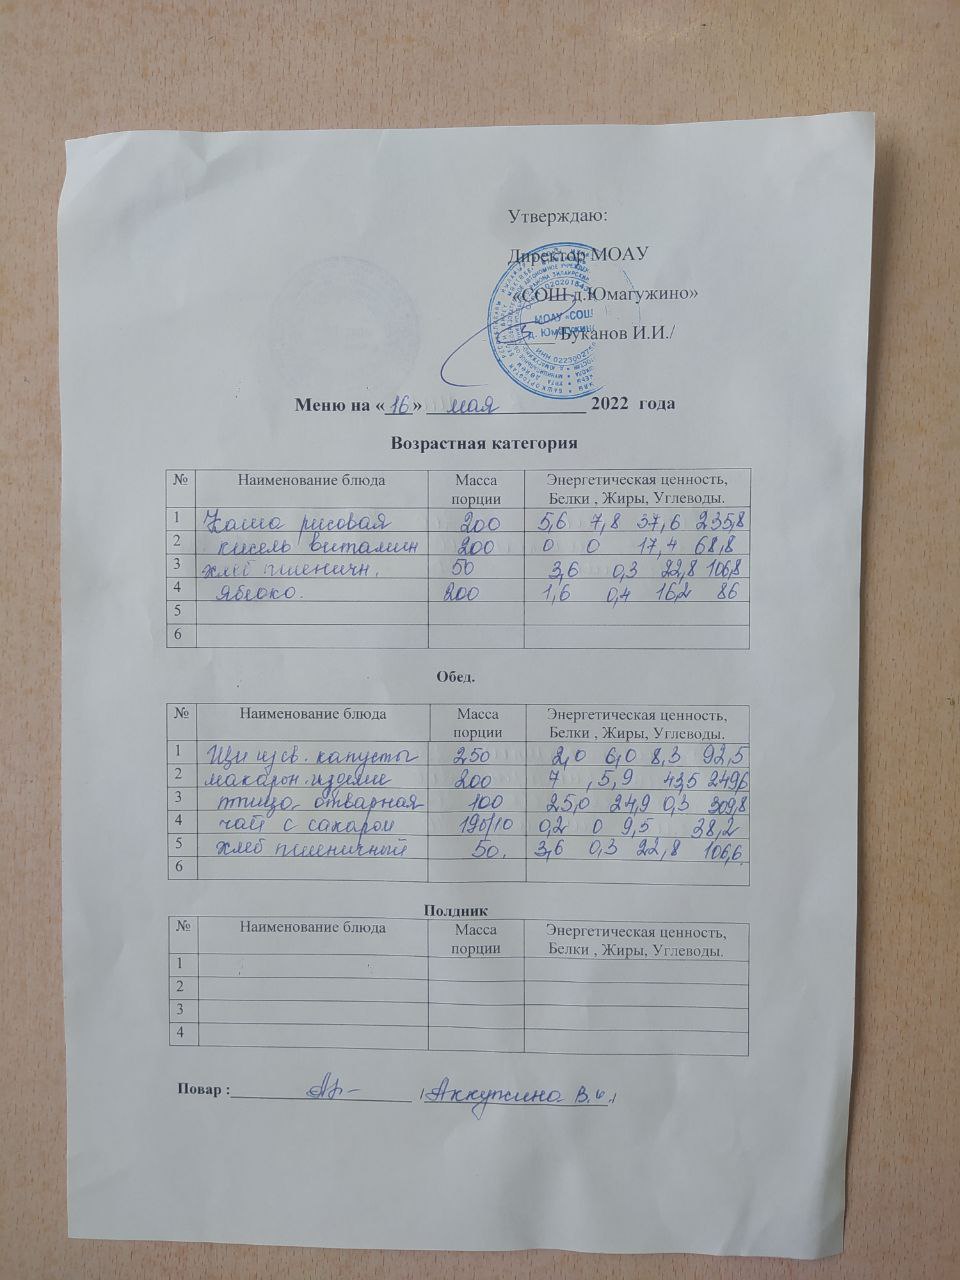 Утверждаю:
Директор МОАУ
«СОШ д.Юмагужино»
/Буканов И.И./
МОАУ «СОШ
д. Юмагужино
Меню на «16» мая 2022 года
Возрастная категория
№ Наименование блюда Масса порции Энергетическая ценность, Белки , Жиры, Углеводы.
1 Каша рисовая 200 5,6 7,8 37,6 235,8
2 кисель витамин 200 0 0 17,4 68,8
3 хлеб пшеничн. 50 3,6 0,3 22,8 106,8
4 яблоко. 200 1,6 0,4 16,2 86
5
6
Обед.
№ Наименование блюда Масса порции Энергетическая ценность, Белки , Жиры, Углеводы.
1 Щи из св. капусты 250 2,0 6,0 8,3 92,5
2 макарон. изделие 200 7 ,5,9 43,5 249,6
3 птица отварная 100 25,0 24,9 0,3 309,8
4 чай с сахаром 190/10 0,2 0 9,5 38,2
5 хлеб пшеничный 50. 3,6 0,3 22,8 106,6.
6
Полдник
№ Наименование блюда Масса порции Энергетическая ценность, Белки , Жиры, Углеводы.
1
2
3
4
Повар : /Аккужина В.И./